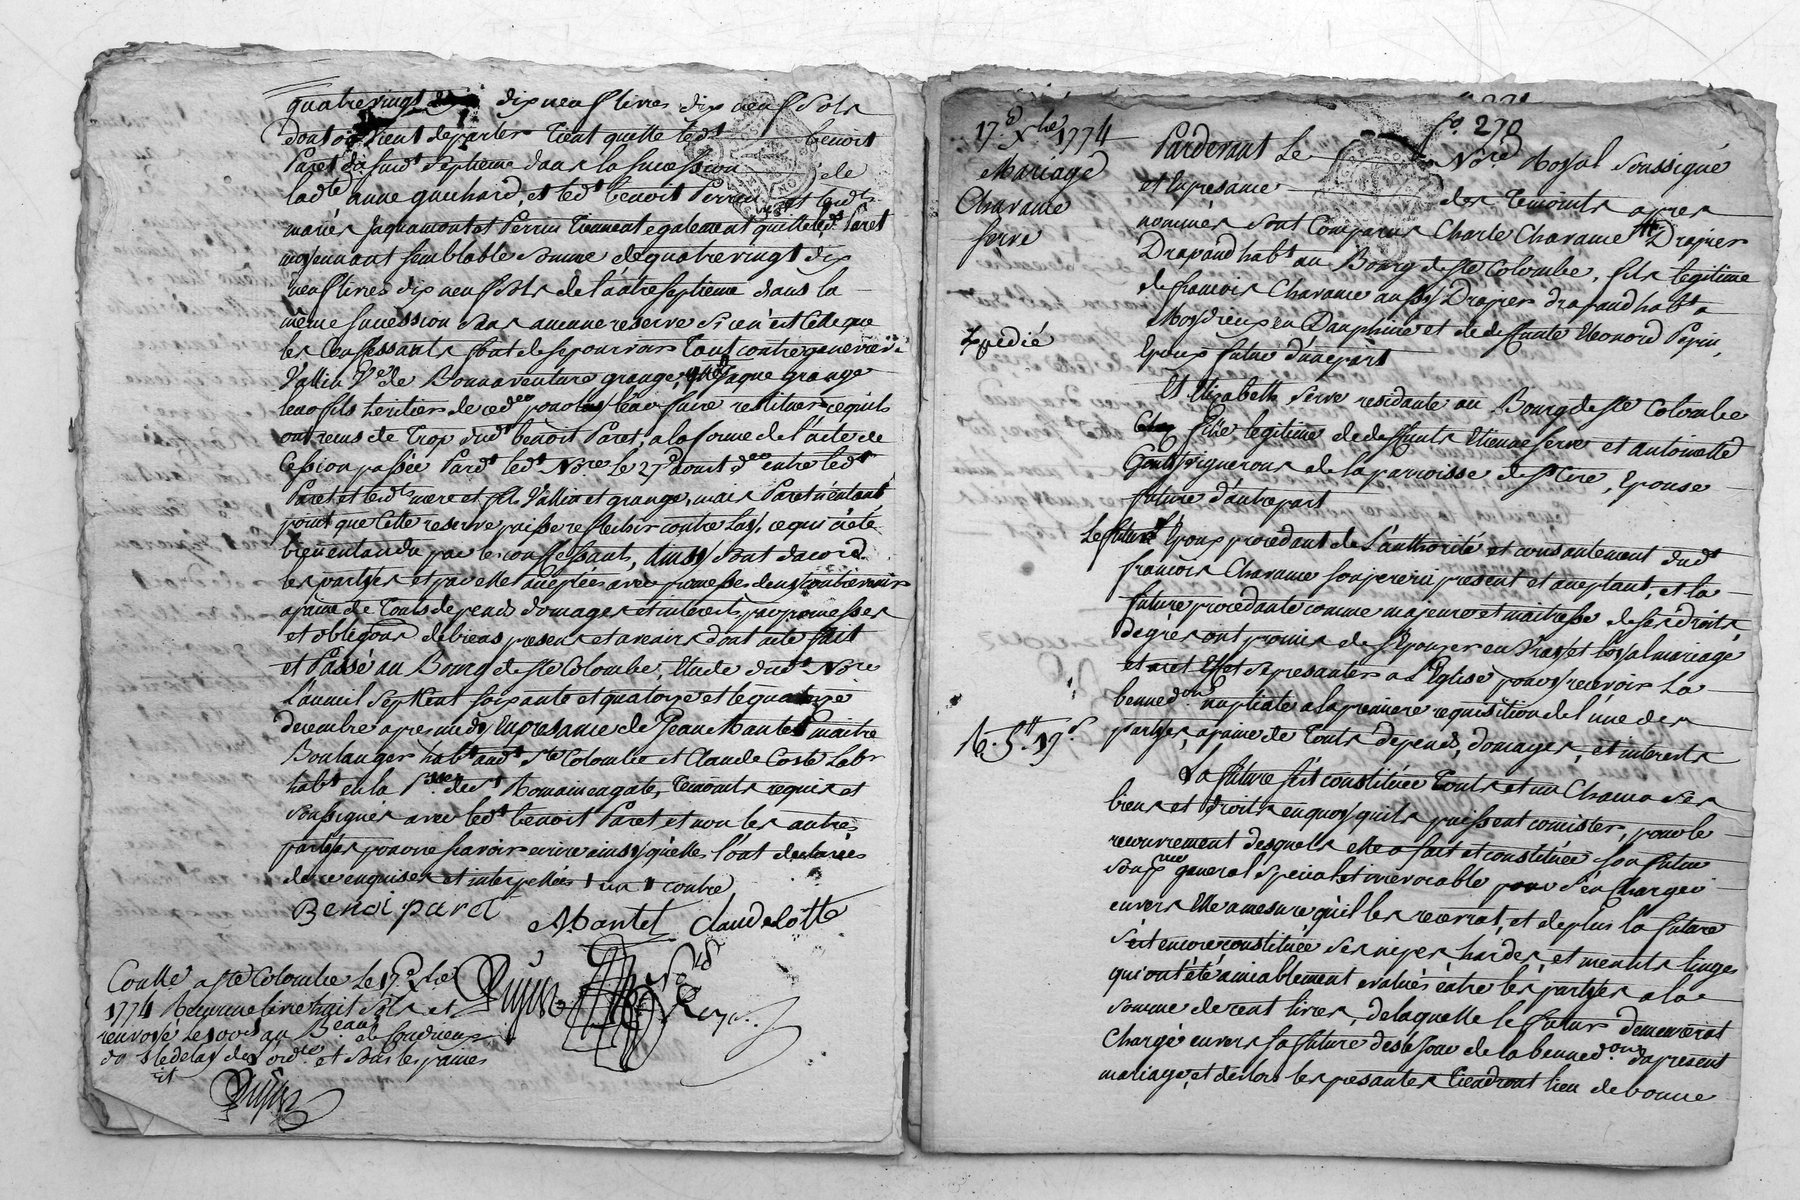 quatrevingt dix neuf livres dix neuf sols
dont il vient de parler tient quitte led.t benoit
Paret dud.t septieme dans la sucession de
lad.te anne guichard, et led.t benoit Perrin et lesd.ts
mariés Jaquamont et Perrin tiennent egalement quitte led.t Paret
moyennant semblable somme de quatrevingt dix
neuf livres dix neuf sols de l'autre septieme dans la
même sucession sans aucune reserve si ce n'est celle que
les Confessants font de se pourvoir tout contre genevieve
Vallin V.e de Bonnaventure grange, Jaque grange
leur fils heritier de ced.er pour leur faire restituer ce qu'ils
ont reçus de trop dud.t benoit Paret, a la forme de l'acte de
Cession passée Pard.t led.t No.re le 27 aout d.er entre led.t
Paret et lesd.ts mere et fils Vallin et grange, mais Paret n'entant
point que cette reserve puisse reflechir contre luy, ce qui a été
bien entandu par les confessants, Ainsy sont dacord
les partyes et par elles acceptées avec promesses de n'y contrevenir
a paine de touts depends domages et interets par promesses
et oblig.ons de biens presens et avenirs dont acte fait
et Passé au Bourg de Ste Colombe, Etude dud.t No.re
L'an mil sept Cent soixante et quatorze et le quatorze
decembre apres midy En presance de Jean Mantel maitre
Boulanger hab.t aud.t Ste Colombe et Claude Coste Lab.r
hab.t en la P.sse de St Romain en gale, temoints requis et
soussignés avec led.t benoit Paret et non les autres
partyes pour ne scavoir ecrire ainsy qu'elles l'ont declarées
de ce enquises et interpellées
Benoi paret
Mantel Claude Cotte
Conllé a Ste Colombe le 17.e Xbre
1774 Recu une livre huit sols et
renvoyé le 100.e au Beau de Condrieux
et sous les paines
17.e Xbre 1774
Mariage
Charame
Serve
Expedié
R. 5.tt 19.s
f.o 270
Pardevant Le No.re Royal Soussigné
et En presance des temoints apres
nommés sont Comparus Charle Charame M.e Drapier
Drapand hab.t au Bourg de Ste Colombe, fils legitime
de francois Charame aussy Drapier drapand hab.t a
Moydieux en Dauphiné et de deffunte Eleonord Pepin,
Epoux futur d'une part
Et Elizabeth Serve residante au Bourg de Ste Colombe
fille legitime de deffunts Etienne Serve et antoinette
vignerons de la parroisse de St Cire, Epouse
future d'autre part
Le futur Epoux procedant de L'authorité et consantement dud.t
francois Charame son pere icy present et aceptant, et la
future procedante comme majeure et maitresse de ses droits,
de gres ont promis de s'Epouzer en vray et loyal mariage
et se presanter a l'Eglise pour y recevoir La
benned.on nuptiale a la premiere requisition de l'une des
partyes, a paine de touts depends, domages, et interets
La future s'est constituée touts et un Chacun ses
biens et droits en quoy qu'ils puissent consister, pour le
recouvrement desquels elle a fait et constituée son futur
son p.reur general special et irrevocable pour s'en charger
envers Elle a mesure qu'il les recevrat, et de plus la future
s'est encore constituée ses nipes hardes et menuts linges
qui ont été amiablement evalués entre les partyes a la
somme de cent livres, de laquelle le futur demeurerat
Chargé envers sa future des le jour de la benned.on du present
mariage, et des lors les presantes tiendront lieu de bonne